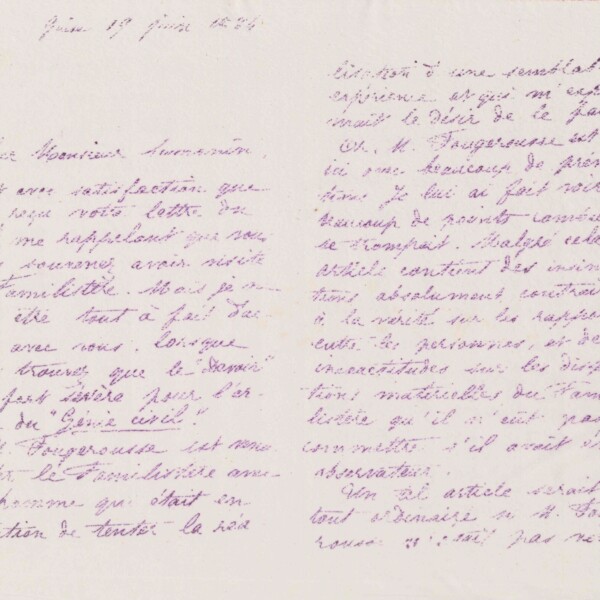 Guise 19 juin 1884
Monsieur
avec satisfaction que
reçu votre lettre du
me rappelant que vous
souvenez avoir visité
Familistère. Mais je n
être tout à fait d'ac
avec vous. lorsque
trouvez que le "Devoir"
fort sévère pour l'ar-
du "Génie civil".
Fougerousse est venu
le Familistère avec
homme qui était en
tion de tenter la réa
lisation d'une semblab
expérience et qui m'exp
mait le désir de le fai
Or, M. Fougerousse est
ici avec beaucoup de préven
tions. Je lui ai fait voir
beaucoup de points
se trompait. Malgré cela
article contient des insinua
tions absolument contrai
à la vérité sur les rappo
entre les personnes, et de
inexactitudes sur les dispo
tions matérielles du Fami
listère qu'il n'eut pas
commettre s'il avait é
observateur.
Un tel article serait
tout ordinaire si M. Fou
rousse n'était pas ve